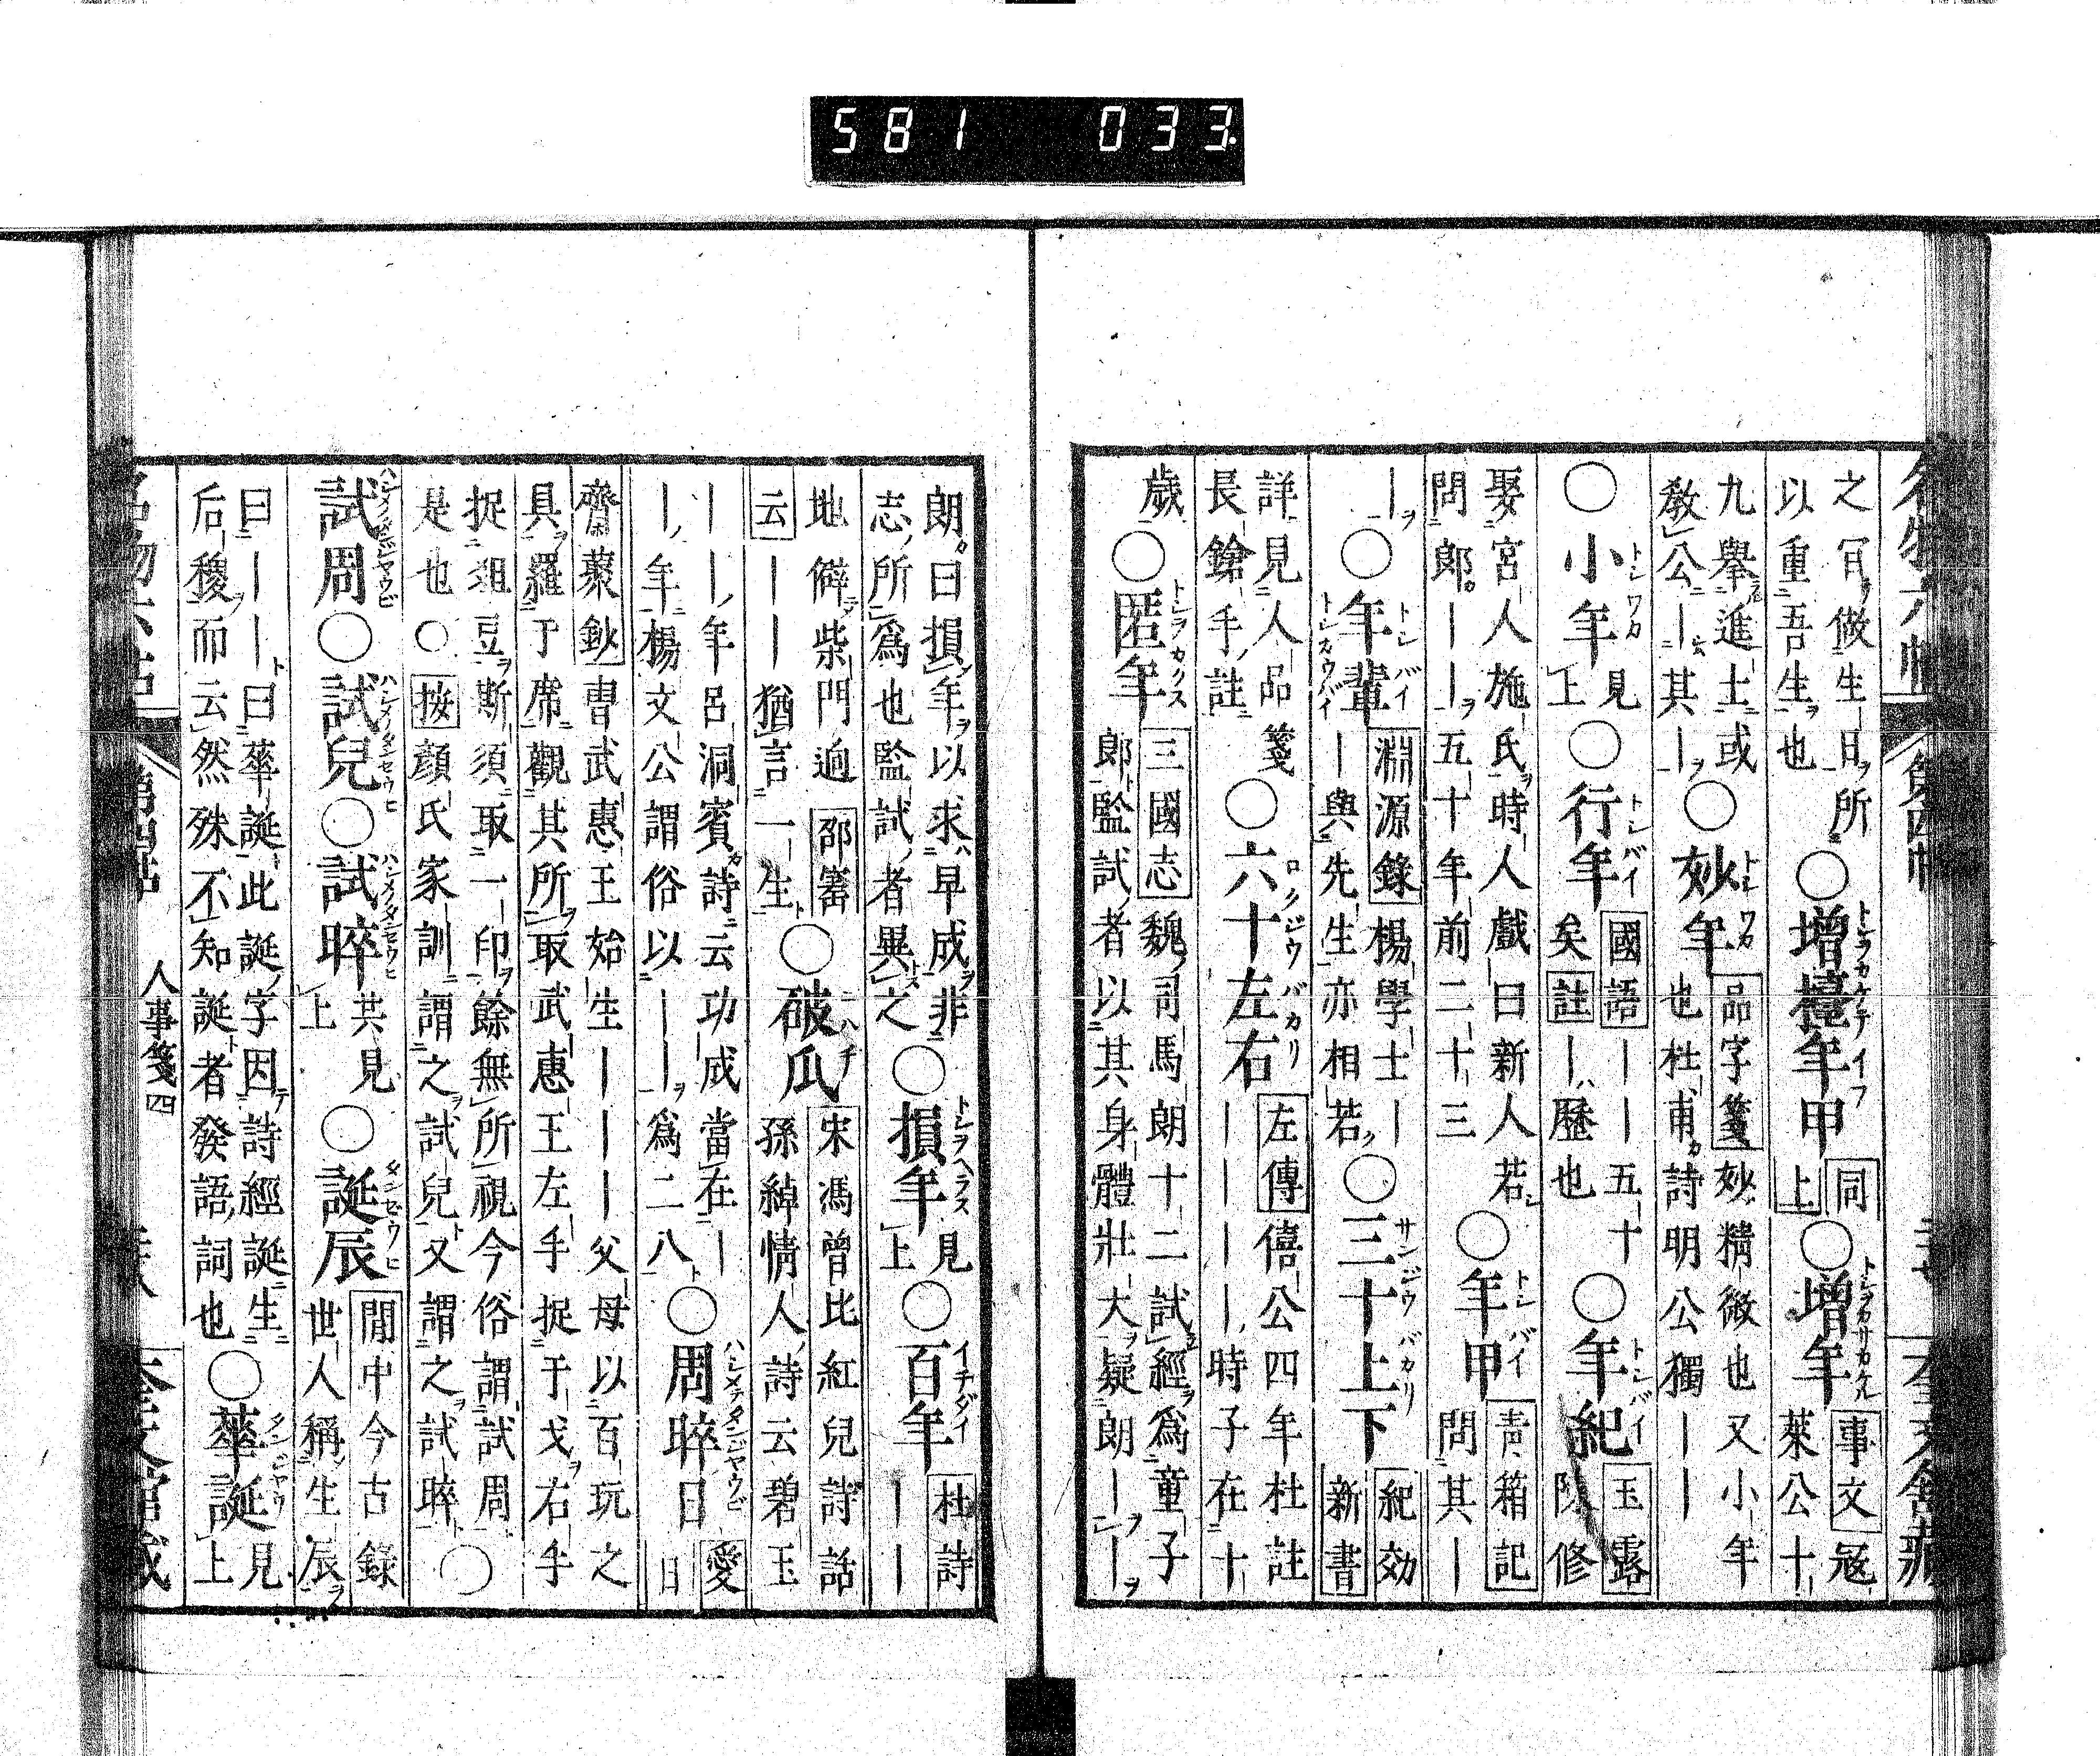 581 033
之官做生日所
以重吾生也
○增擡年甲
同上
○增年
事文寇
萊公十
九舉進士或
敎公—其—
○妙年
品字箋妙精微也又小年
也杜甫詩明公獨——
○小年
見上
○行年
國語——五十
矣註—歷也
○年紀
玉露
陳修
娶宮人施氏時人戲曰新人若
問郎——五十年前二十三
○年甲
靑箱記
問其—
—
○年輩
淵源錄楊學士—
—與先生亦相若
○三十上下
紀効
新書
詳見人品箋
長鎗手註
○六十左右
左傳僖公四年杜註
————時子在十
歲
○匿年
三國志魏司馬朗十二試經爲童子
郎監試者以其身體壯大疑朗——
朗曰損年以求早成非
志所爲也監試者異之
○損年
見上
○百年
杜詩
——
地僻柴門逈邵籌
云——猶言一生
○破瓜
宋馮曾比紅兒詩話
孫綽情人詩云碧玉
——年呂洞賓詩云功成當在—
—年楊文公謂俗以——爲二八
○周晬日
愛
日
齋藂鈔曹武惠王始生———父母以百玩之
具羅于席觀其所取武惠王左手捉于戈右手
捉俎豆斯須取一印餘無所視今俗謂試周
是也○按顏氏家訓謂之試兒又謂之試晬○
試周○試兒○試晬
共見上
○誕辰
閒中今古錄
世人稱生辰
曰——曰華誕此誕字因詩經誕生
后稷而云然殊不知誕者發語詞也
○華誕
見上
人事箋四